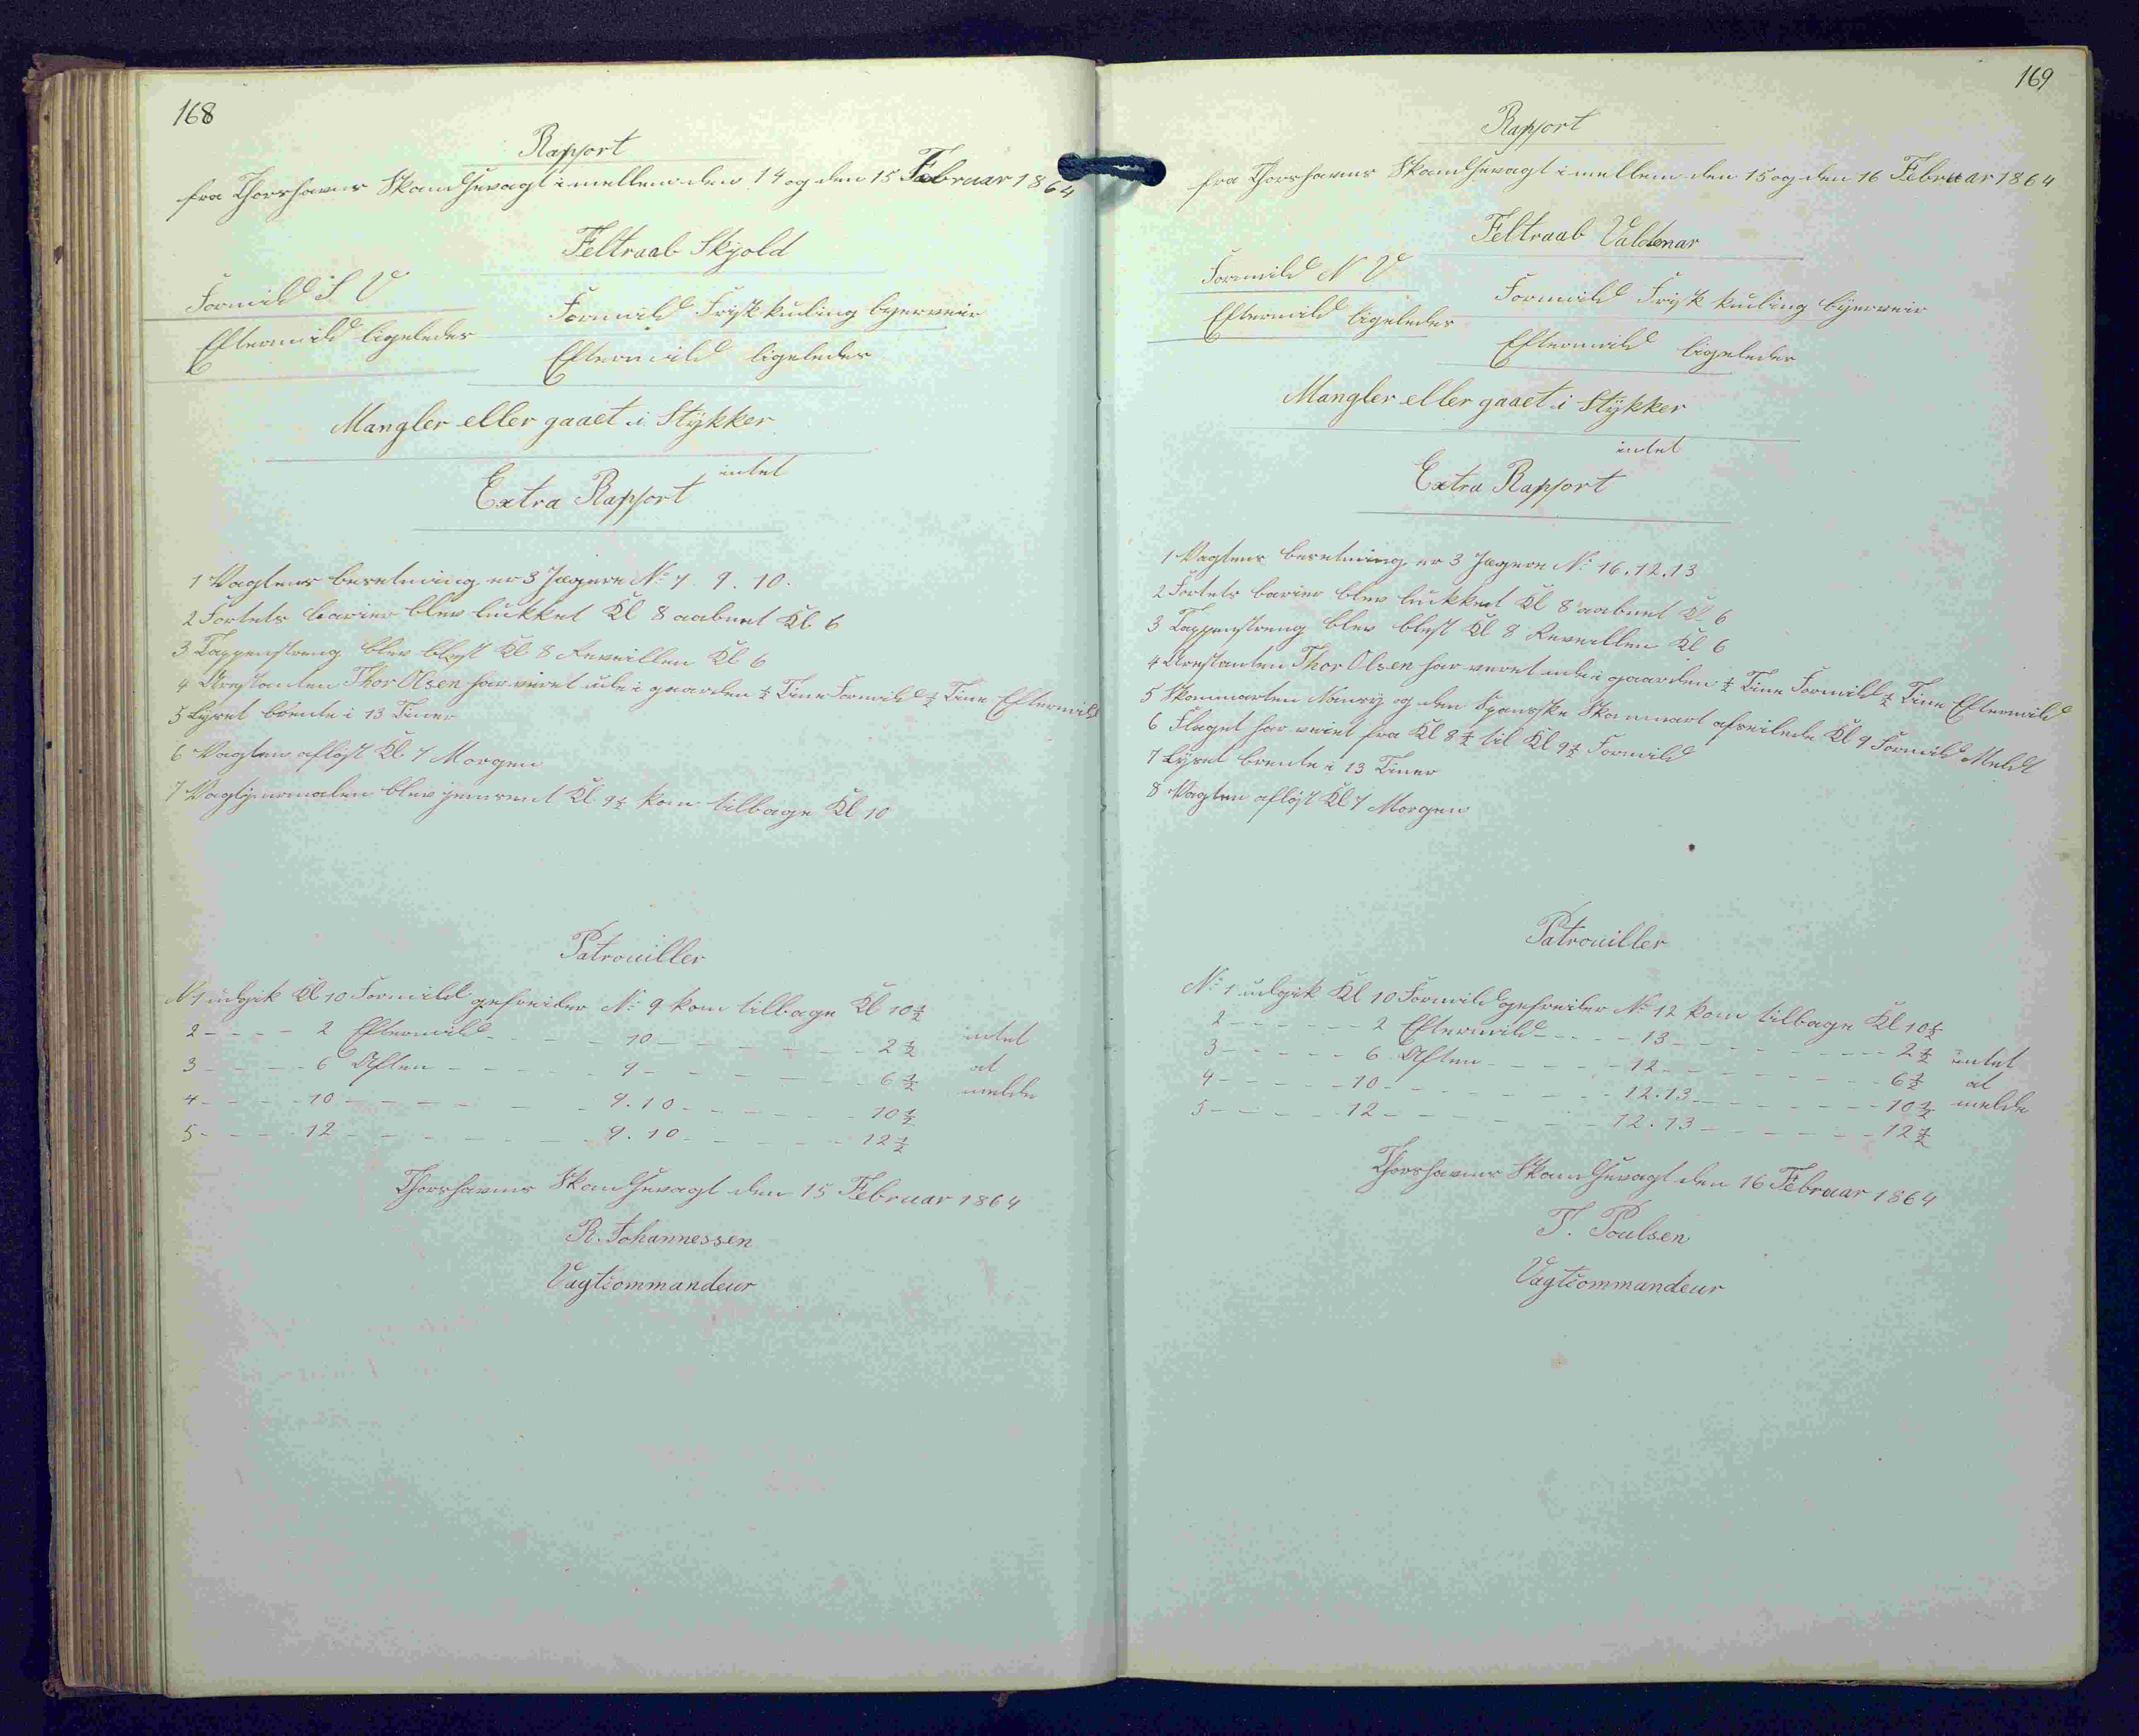 168
Rapport
fra Thorshavns Skandsevagt imellem den 14 og den 15 Februar 1864
Feltraab Skjold
Formild S V
Formild Frisk kuling byerveir
Eftermild ligeledes
Eftermild ligeledes
Mangler eller gaaet i Stykker
intet
Extra Rapport
1 Vagtens besetning er 3 Jægere No 7. 9. 10.
2 Fortets barier blev lukket Kl 8 aabnet Kl 6
3 Tappenstreng blev blest Kl 8 Reveillen Kl 6
4 Arestanten Thor Olsen har veret ude i gaarden ½ Time Formild ½ Time Eftermild
5 Lyset brente i 13 Timer
6 Vagten afløst Kl 7 Morgen
7 Vagtjournalen blev Kl 9½ kom tilbage Kl 10
Patrouiller
No 1 udgik Kl 10 Formild gefreider No 9 kom tilbage Kl 10½
2 - - - - 2 Eftermild - - - - 10 - - - - - - 2½ intet
3 - - - - 6 Aften - - - - 9 - - - - - - 6½ at
4 - - - - 10 - - - - - - 9. 10 - - - - - - 10½ melde
5 - - - - 12 - - - - - - 9. 10 - - - - - - 12½
Thorshavns Skandsevagt den 15 Februar 1864
R. Johannessen
Vagtcommandeur
169
Rapport
fra Thorshavns Skandsevagt imellem den 15 og den 16 Februar 1864
Feltraab Valdemar
Formild N V
Formild Frisk kuling byerveir
Eftermild ligeledes
Eftermild ligeledes
Mangler eller gaaet i Stykker
intet
Extra Rapport
1 Vagtens besetning er 3 Jægere No 16. 12. 13
2 Fortets barier blev lukket Kl 8 aabnet Kl 6
3 Tappenstreng blev blest Kl 8 Reveillen Kl 6
4 Arestanten Thor Olsen har veret ude i gaarden ½ Time Formild ½ Time Eftermild
5 Skonnarten Nancy og den Spansske Skonnart afseilede Kl 9 Formild Meldt
6 Flaget har veiet fra Kl 8½ til Kl 9½ Formild
7 Lyset brente i 13 Timer
8 Vagten afløst Kl 7 Morgen
Patrouiller
No 1 udgik Kl 10 Formild gefreider No 12 kom tilbage Kl 10½
2 - - - - - - 2 Eftermild - - - - 13 - - - - - - 2½ intet
3 - - - - - 6 Aften - - - - - 12 - - - - - - 6½ at
4 - - - - - 10 - - - - - - 12. 13 - - - - - - 10½ melde
5 - - - - - 12 - - - - - - 12. 13 - - - - - - 12½
Thorshavns Skandsevagt den 16 Februar 1864
T. Poulsen
Vagtcommandeur